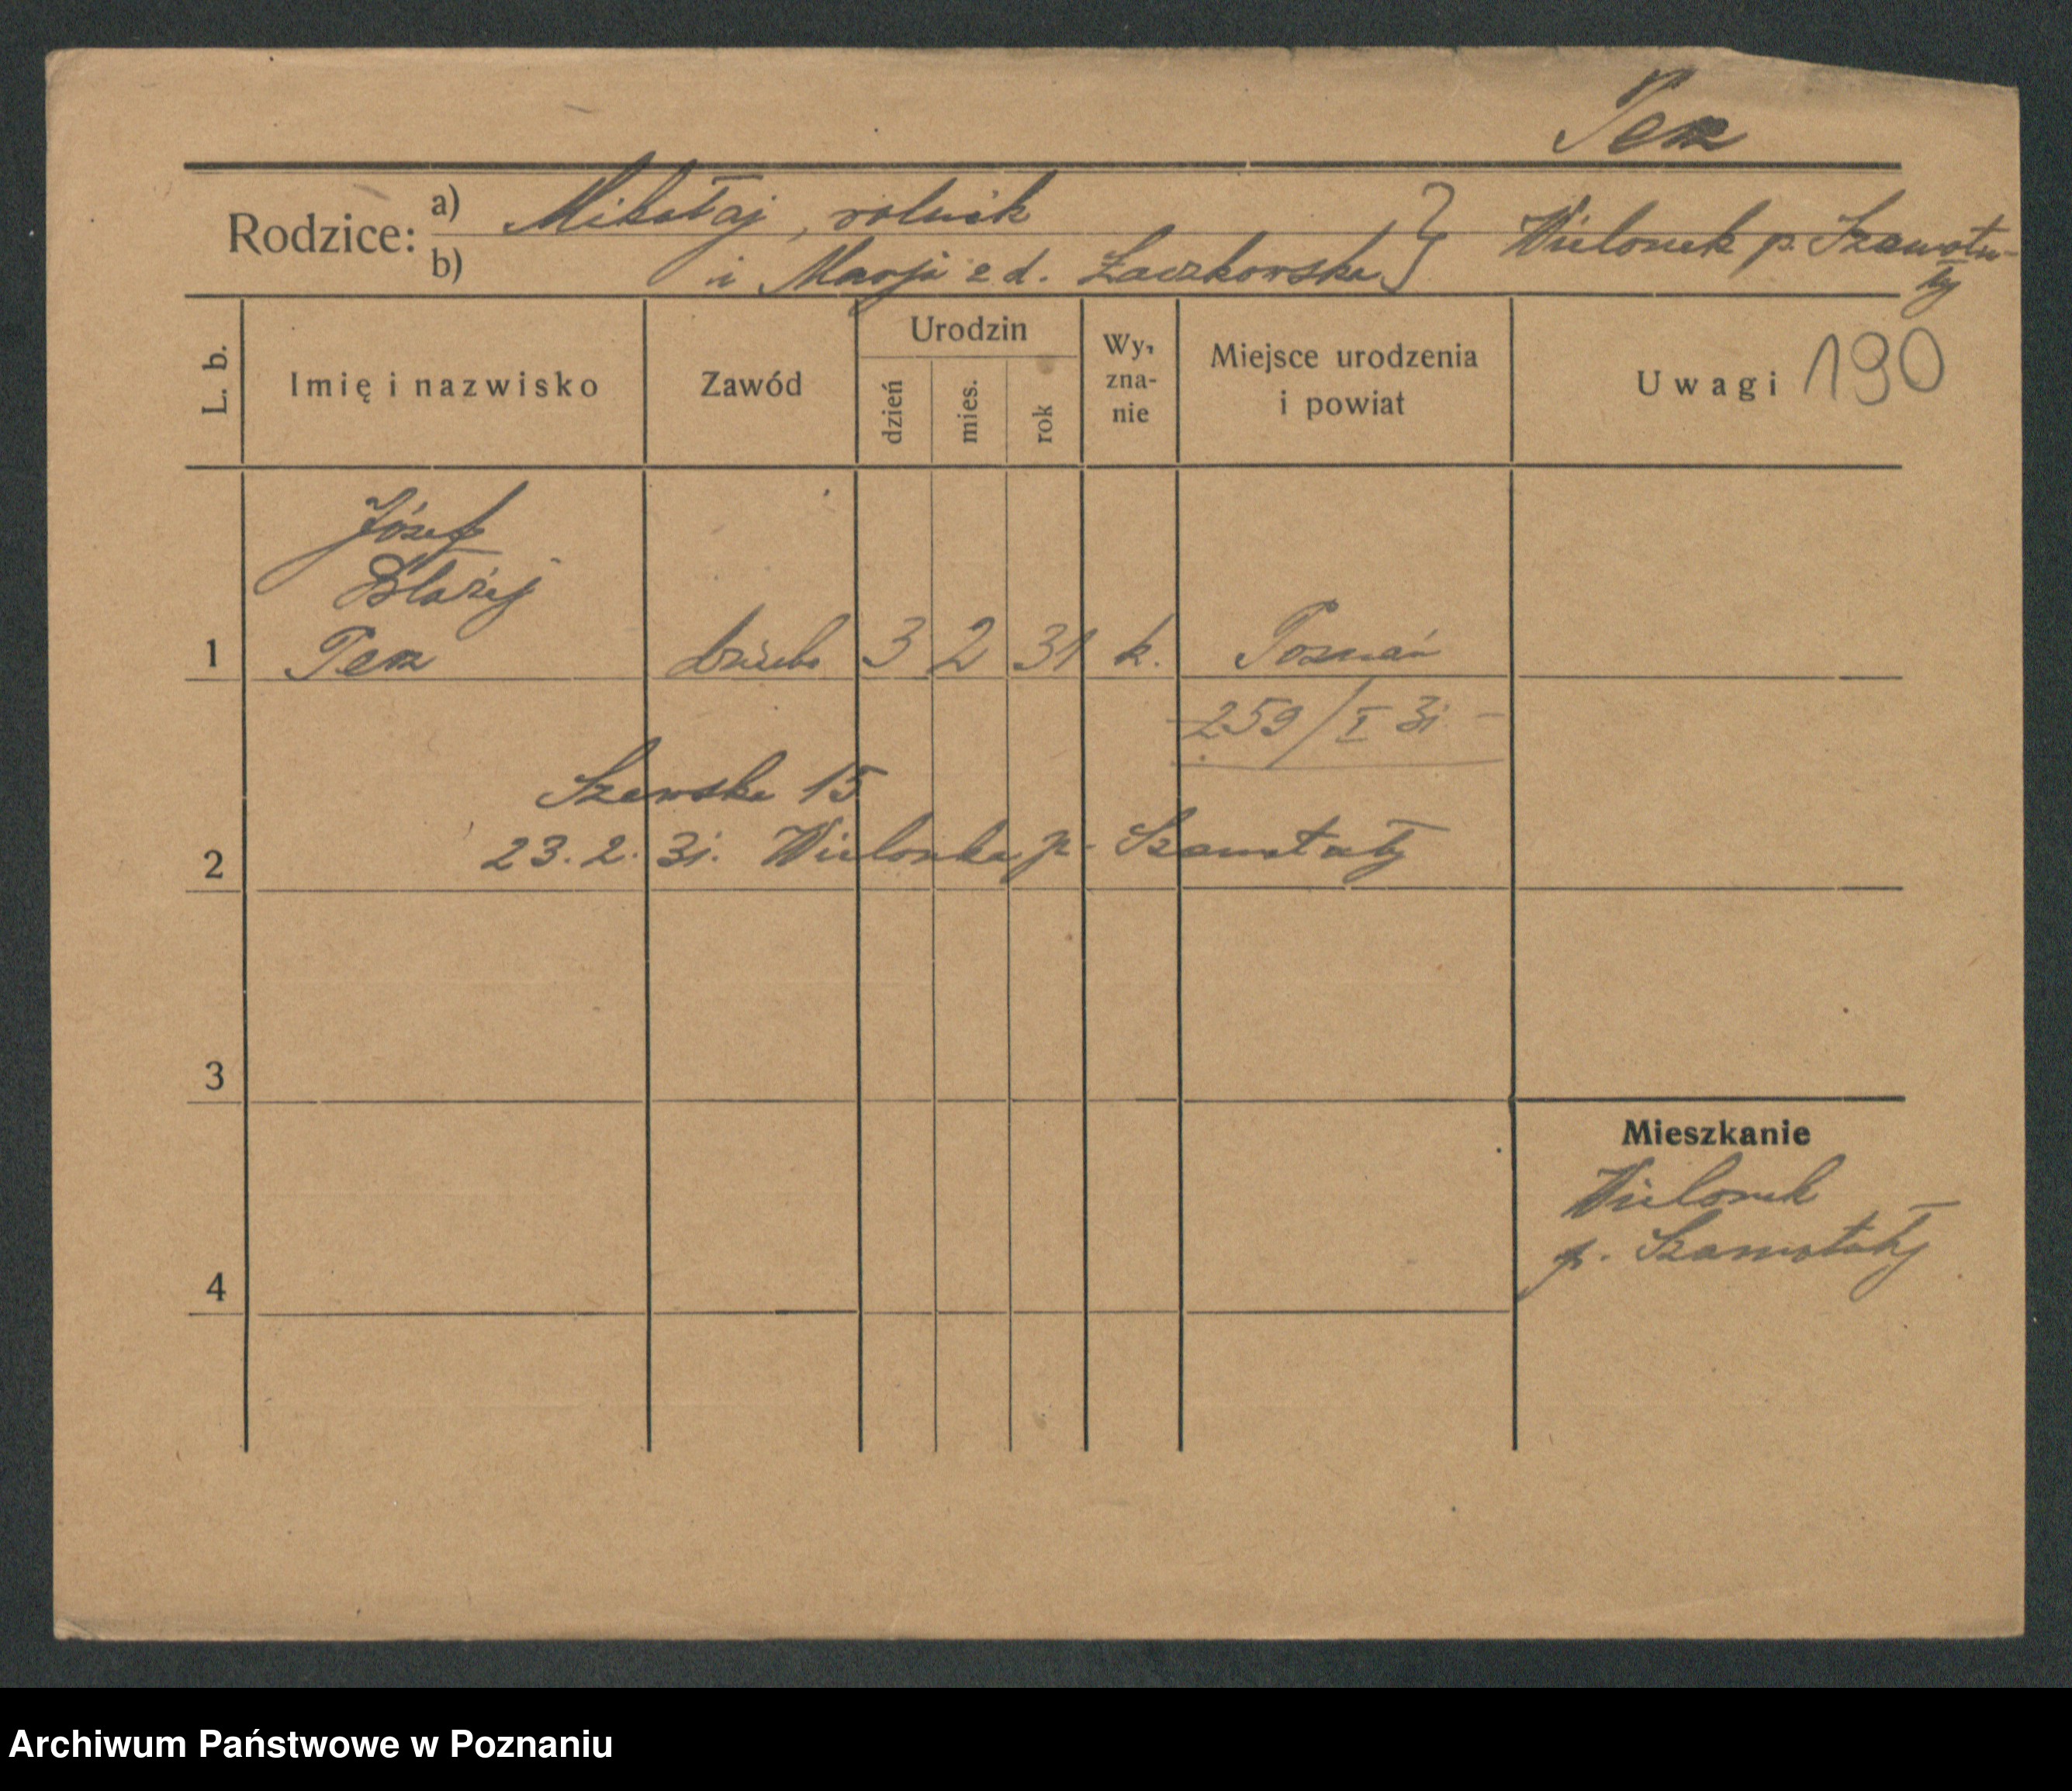 Pera
Rodzice: a) Mikołaj, rolnik } Wielonek p. Szamotu-
b) i Marji z d. Łaczkowska ły
L. b. Imię i nazwisko Zawód Urodzin dzień mies. rok Wy-zna-nie Miejsce urodzenia i powiat Uwagi 190
Józef
Błażej
1 Pera dziecko 3 2 31 k. Poznań
259/I 31 -
Szewska 15
2 23.2.31. Wielonka p. Szamotuły
3
Mieszkanie
Wielonek
p. Szamotuły
4
Archiwum Państwowe w Poznaniu